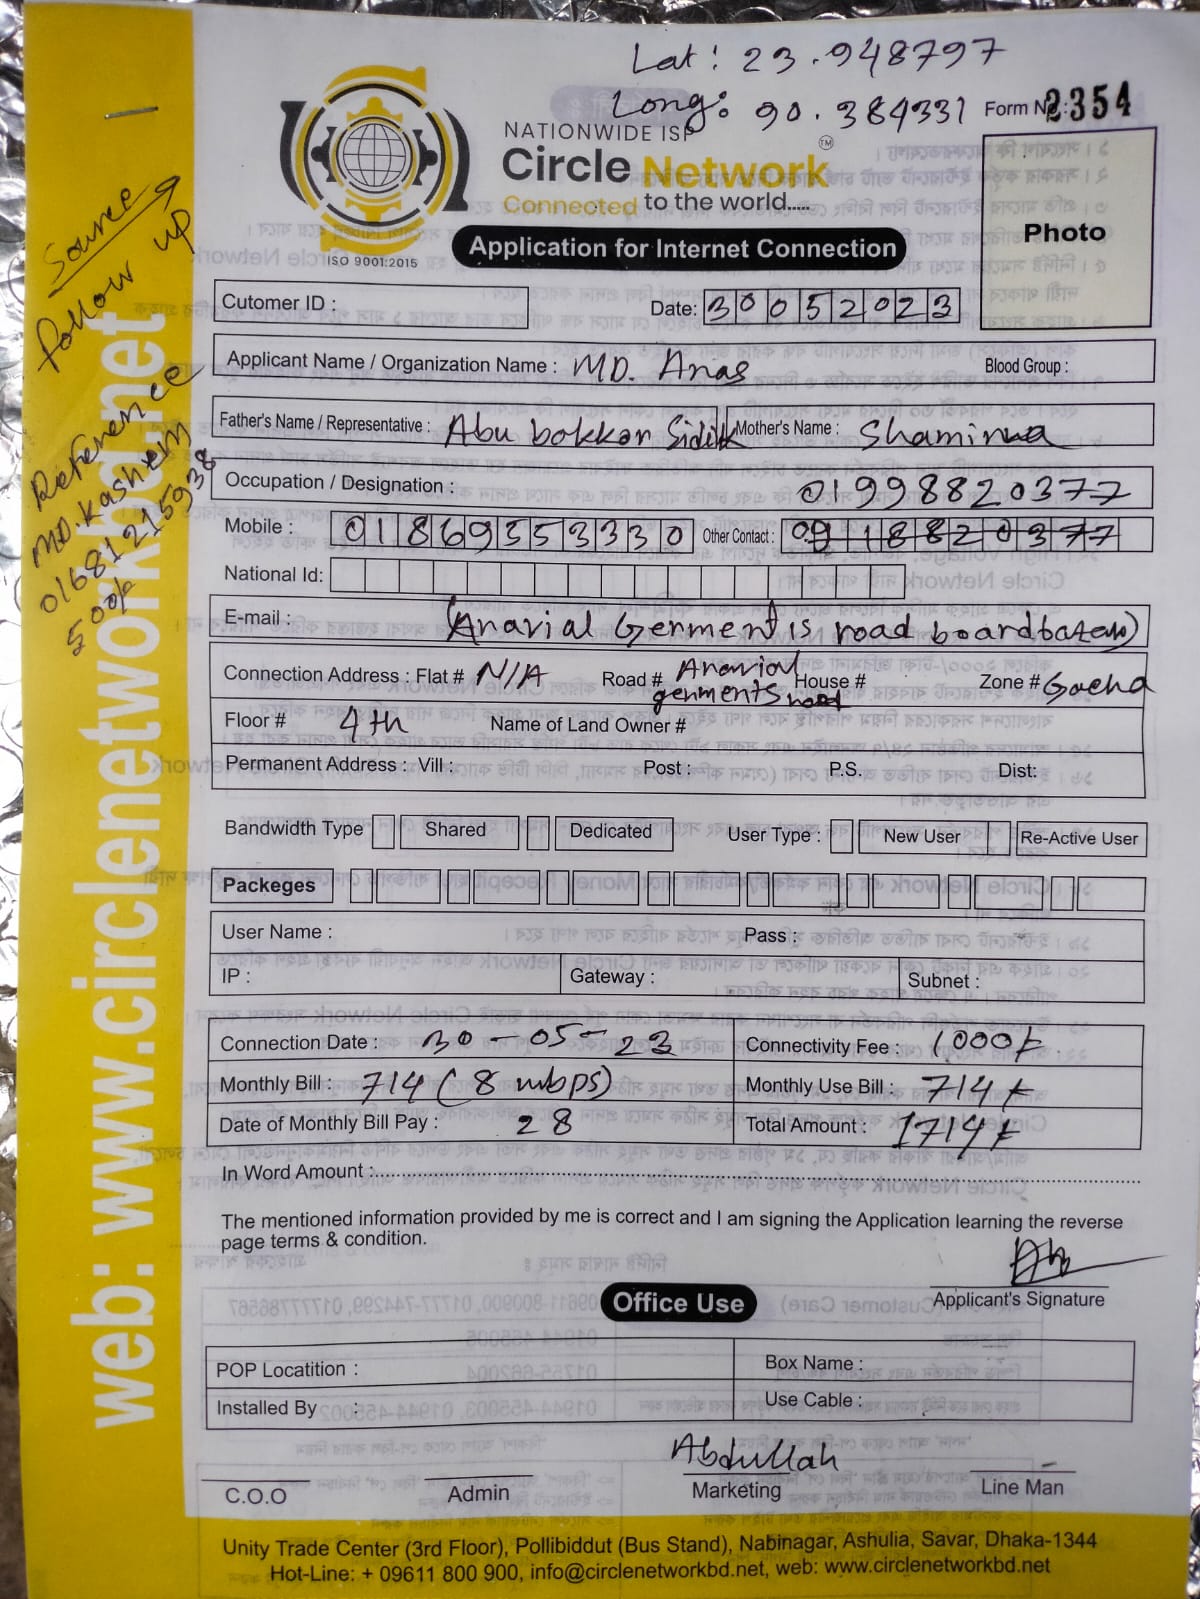 Lat: 23.948797
Long: 90.384331
Form No: 2354
NATIONWIDE ISP
Circle Network TM
Connected to the world.....
ISO 9001:2015
Application for Internet Connection
Photo
Source
follow up
Reference
MD. Kashem
01681215938
500/-
web: www.circlenetworkbd.net
Cutomer ID :
Date: 30052023
Applicant Name / Organization Name : MD. Anas
Blood Group :
Father's Name / Representative : Abu bokkar Sidikk Mother's Name : Shamima
Occupation / Designation : 01998820377
Mobile : 01869553330 Other Contact :
National Id:
E-mail : (Anarial Germent is road boardbazar)
Connection Address : Flat # N/A Road # Anarial germents road House # Zone # Gacha
Floor # 4th Name of Land Owner #
Permanent Address : Vill : Post : P.S. Dist:
Bandwidth Type Shared Dedicated User Type : New User Re-Active User
Packeges
User Name : Pass :
IP : Gateway : Subnet :
Connection Date : 30-05-23 Connectivity Fee : 1000/-
Monthly Bill : 714 (8 mbps) Monthly Use Bill : 714/-
Date of Monthly Bill Pay : 28 Total Amount : 1714/-
In Word Amount :
The mentioned information provided by me is correct and I am signing the Application learning the reverse
page terms & condition.
Applicant's Signature
Office Use
POP Locatition : Box Name :
Installed By : Use Cable :
Abdullah
C.O.O Admin Marketing Line Man
Unity Trade Center (3rd Floor), Pollibiddut (Bus Stand), Nabinagar, Ashulia, Savar, Dhaka-1344
Hot-Line: + 09611 800 900, info@circlenetworkbd.net, web: www.circlenetworkbd.net